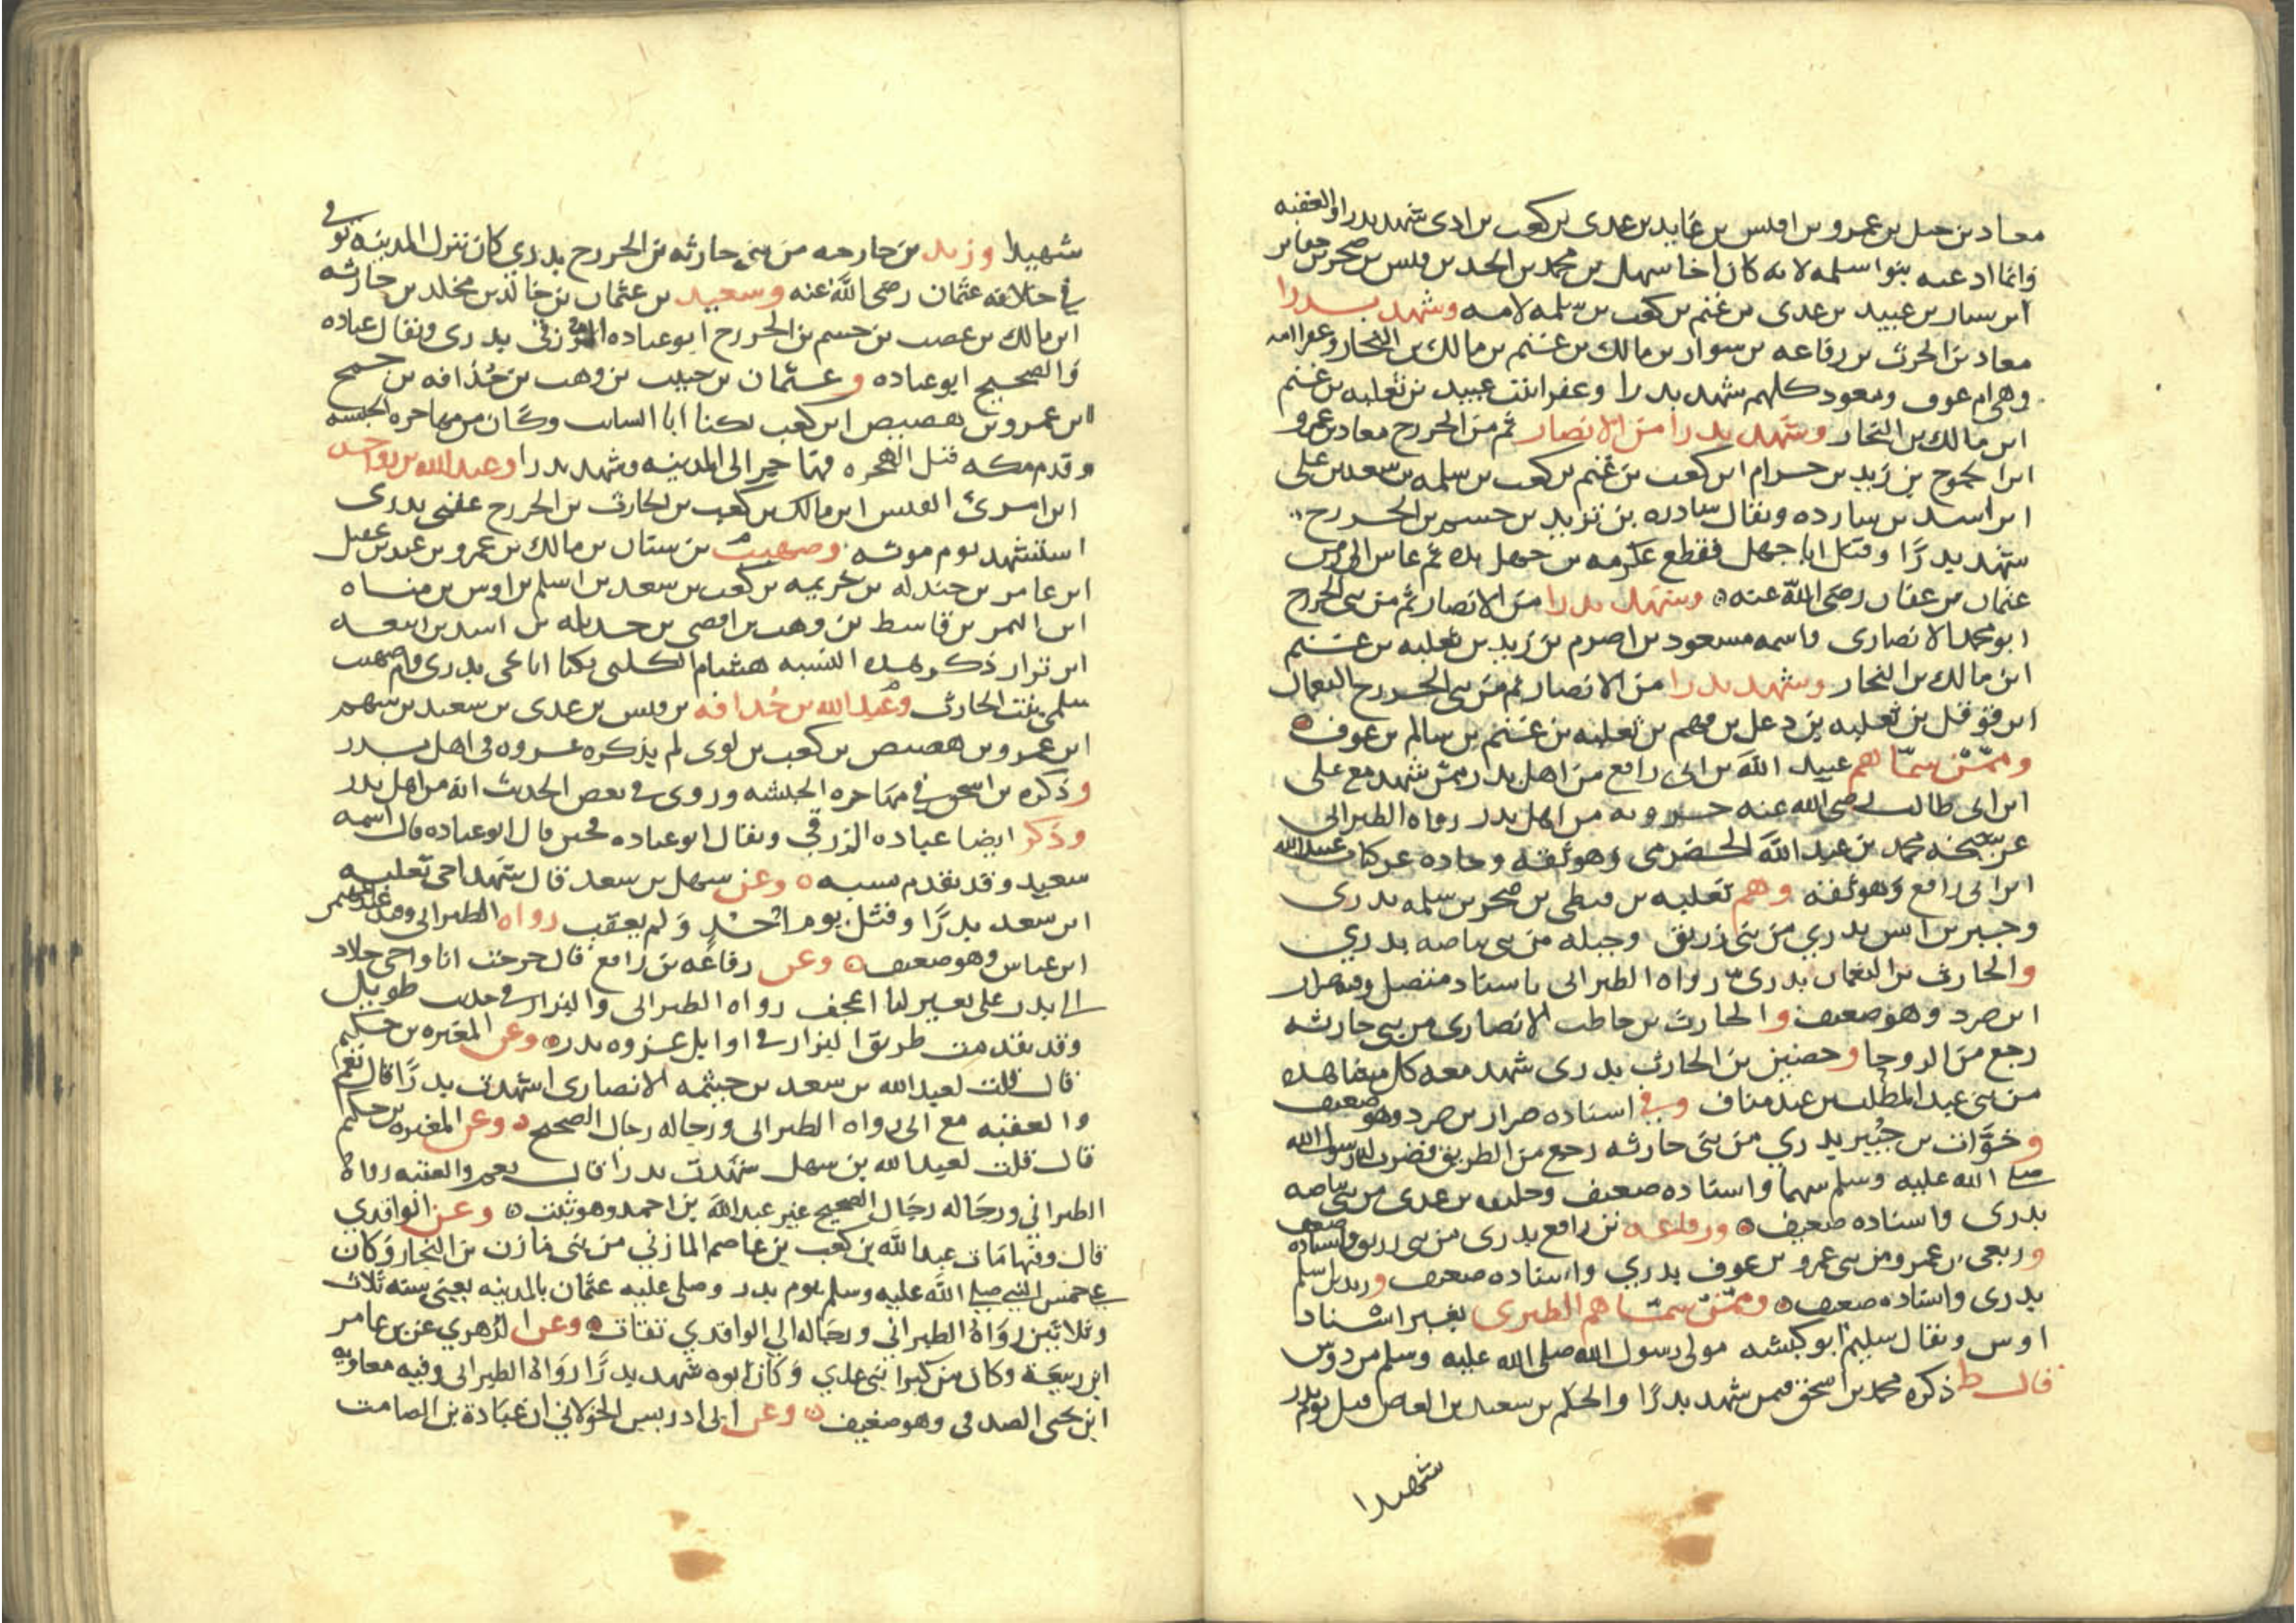 معاد بن جبل بن عمرو بن اوس بن عايد بن عدى بن كعب بن ادى شهد بدرا والعقبه
وانما ادعته بنوا سلمه لانه كان اخا سهل بن محمد بن الجد بن قيس بن صخر بن
ابن سنان بن عبيد بن عدى بن غنم بن كعب بن سلمه لامه وشهد بدرا
معاد بن الحرث بن رفاعه بن سوار بن مالك بن غنم بن مالك بن النجار وعفرا امه
وهى ام عوف ومعود كلهم شهد بدرا وعفرا بنت عبيد بن ثعلبه بن غنم
ابن مالك بن النجار وشهد بدرا من الانصار ثم من الخزرج معاد بن عمرو
ابن الجموح بن زيد بن حرام ابن كعب بن غنم بن كعب بن سلمه بن سعد بن على
ابن اسد بن سارده ويقال سادره بن تزيد بن جسم بن الخزرج
شهد بدرًا وقتل ابا جهل فقطع عكرمه بن جهل يده ثم عاش الى زمن
عثمان بن عفان رضى الله عنه وشهد بدرا من الانصار ثم من بنى الخزرج
ابو محمد الانصارى واسمه مسعود بن اصرم بن زيد بن ثعلبه بن غنم
ابن مالك بن النجار وشهد بدرا من الانصار ثم من بنى الخزرج النعمان
ابن قوقل بن ثعلبه بن دعل بن فهم بن ثعلبه بن غنم بن سالم بن عوف
وممّن سمّاهم عبيد الله بن ابى رافع من اهل بدر ممن شهد مع على
ابن ابى طالب رضى الله عنه من اهل بدر رواه الطبرانى
عن شيخه محمد بن عبد الله الحضرمى وهو ثقه وجاده عن كتاب عبيد الله
ابن ابى رافع وهو ثقه وهم ثعلبه بن قيطى بن صخر بن سلمه بدرى
وجبر بن انس بدري من بنى زريق وجبله من بنى بياضه بدري
والحارث بن النعمان بدرى رواه الطبرانى باسناد متصل وفيه ضرار
ابن صرد وهو ضعيف والحارث بن حاطب الانصارى من بنى حارثه
رجع من الروحا وحصين بن الحارث بدرى شهد معه كل مشاهده
من بنى عبد المطلب بن عبد مناف وفي اسناده ضرار بن صرد وهو ضعيف
وخوّات بن جُبير بدري من بنى حارثه رجع من الطريق فضرب له رسول الله
صلى الله عليه وسلم سهما واسناده ضعيف وخليفه بن عدى من بنى بياضه
بدرى واسناده ضعيف ورفاعه بن رافع بدرى من بنى زريق واسناده ضعيف
وربعى بن عمرو من بنى عمرو بن عوف بدري واسناده ضعيف وزيد بن اسلم
بدرى واسناده ضعيف وممّن سمّاهم الطبرى بغير اسناد
اوس ويقال سليم ابو كبشه مولى رسول الله صلى الله عليه وسلم من دوس
قال ط ذكره محمد بن اسحق فمن شهد بدرًا والحكم بن سعيد بن العاص قتل يوم بدر
شهيدا
شهيدا وزيد بن حارجه من بنى حارثه بن الخزرج بدري كان ينزل المدينه توفى
في خلافه عثمان رضى الله عنه وسعيد بن عثمان بن خالد بن مخلد بن حارثه
ابن مالك بن عصب بن جسم بن الخزرج ابو عباده الزرقى بدرى ويقال عباده
والصحيح ابو عباده وعثمان بن حبيب بن وهب بن حُذافه بن جمح
ابن عمرو بن هصيص ابن كعب يكنا ابا السايب وكان من مهاجره الحبشه
وقدم مكه قبل الهجره فهاجر الى المدينه وشهد بدرا وعبد الله بن رواحه
ابن امرئ القيس ابن مالك بن كعب بن الحارث بن الخزرج عقبى بدرى
استشهد يوم موته وصهيب بن سنان بن مالك بن عمرو بن عبد بن عقيل
ابن عامر بن جندله بن خزيمه بن كعب بن سعد بن اسلم بن اوس بن مناه
ابن النمر بن قاسط بن وهب بن افصى بن جديله بن اسد بن ربيعه
ابن نزار ذكر هذه النسبه هشام الكلبى يكنا ابا يحى بدرى وام صهيب
سلمى بنت الحارث وعبد الله بن حُذافه بن قيس بن عدى بن سعيد بن سهم
ابن عمرو بن هصيص بن كعب بن لوى لم يذكره عروه فى اهل بدر
وذكره بن اسحق في مهاجره الحبشه وروى في بعض الحديث انه من اهل بدر
وذكر ايضا عباده الزرقي ويقال ابو عباده فمن قال ابو عباده قال اسمه
سعيد وقد تقدم نسبه وعن سهل بن سعد قال شهد اخى ثعلبه
ابن سعد بدرًا وقتل يوم احد ولم يعقب رواه الطبرانى وفيه عبد المهيمن
ابن عباس وهو ضعيف وعن رفاعه بن رافع قال خرجت انا واخى خلاد
الى بدر على بعير لنا اعجف رواه الطبرانى والبزار في حديث طويل
وقد تقدم من طريق البزار في اوايل غزوه بدر وعن المغيره بن حكيم
قال قلت لعبد الله بن سعد بن خيثمه الانصارى اشهدت بدرًا قال نعم
والعقبه مع ابى رواه الطبرانى ورجاله رجال الصحيح وعن المغيره بن حكيم
قال قلت لعبد الله بن سهل شهدت بدرا قال نعم والعقبه رواه
الطبراني ورجاله رجال الصحيح غير عبد الله بن احمد وهو ثبت وعن الواقدي
قال وفيها مات عبد الله بن كعب بن عاصم المازني من بنى مازن بن النجار وكان
على خمس النبي صلى الله عليه وسلم يوم بدر وصلى عليه عثمان بالمدينه يعنى سنه ثلاث
وثلاثين رواه الطبراني ورجاله الى الواقدي ثقات وعن الزهري عن بن عامر
ابن ربيعة وكان من كبرا بنى عدي وكان ابوه شهد بدرًا رواه الطبرانى وفيه معاويه
ابن يحى الصدفى وهو ضعيف وعن ابى ادريس الخولاني ان عبادة بن الصامت